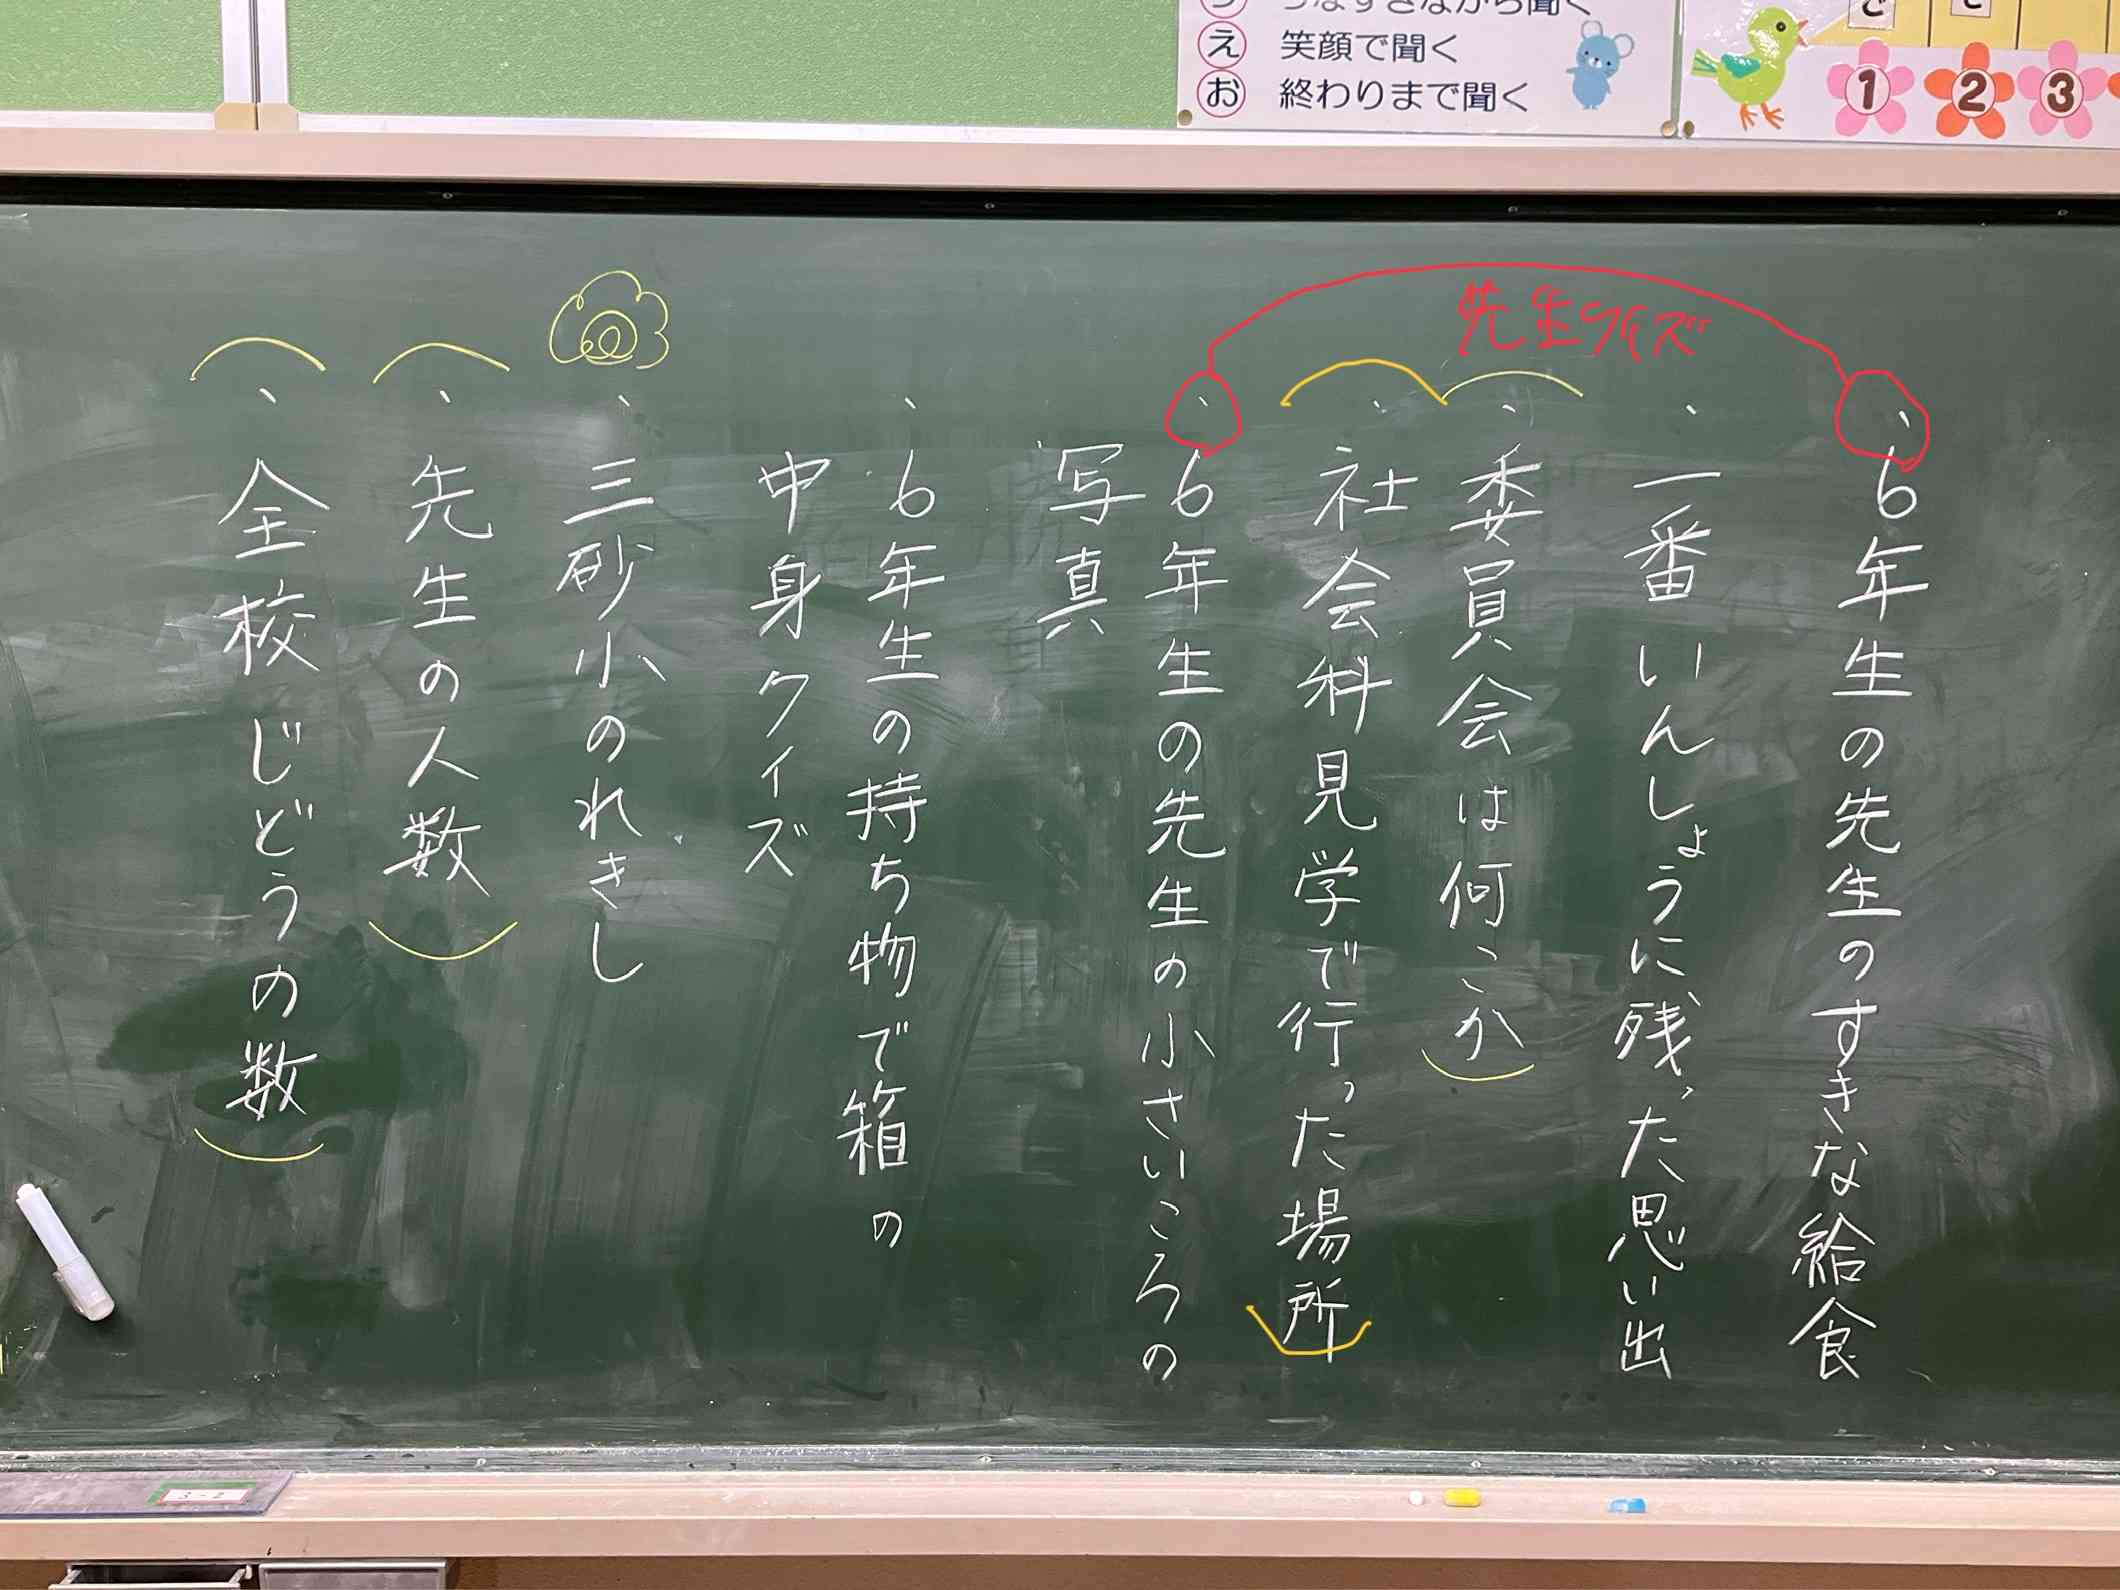 え 笑顔で聞く
お 終わりまで聞く
1 2 3
先生クイズ
・6年生の先生のすきな給食
・一番いんしょうに残った思い出
・委員会は何こか
・社会科見学で行った場所
・6年生の先生の小さいころの
写真
・6年生の持ち物で箱の
中身クイズ
・三砂小のれきし
・先生の人数
・全校じどうの数
3-2